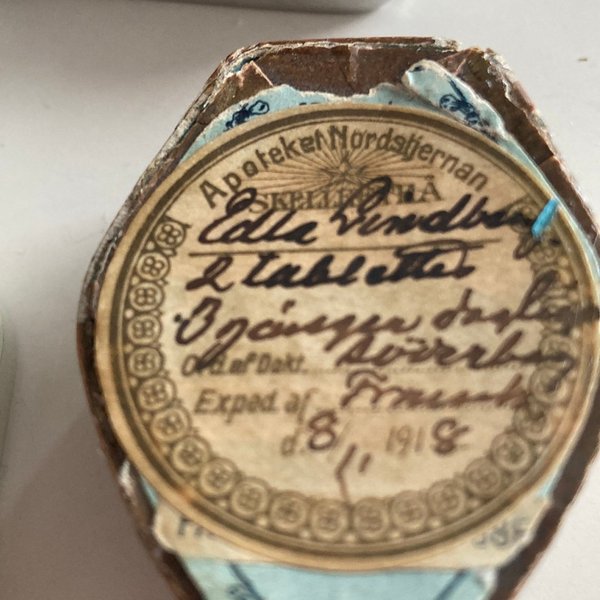 Apoteket Nordstjernan
SKELLEFTEÅ
Edla Lindberg
2 tabletter
3 gånger dagligen
Ord. af Dokt. Söderberg
Exped. af
d. 8/11 1918